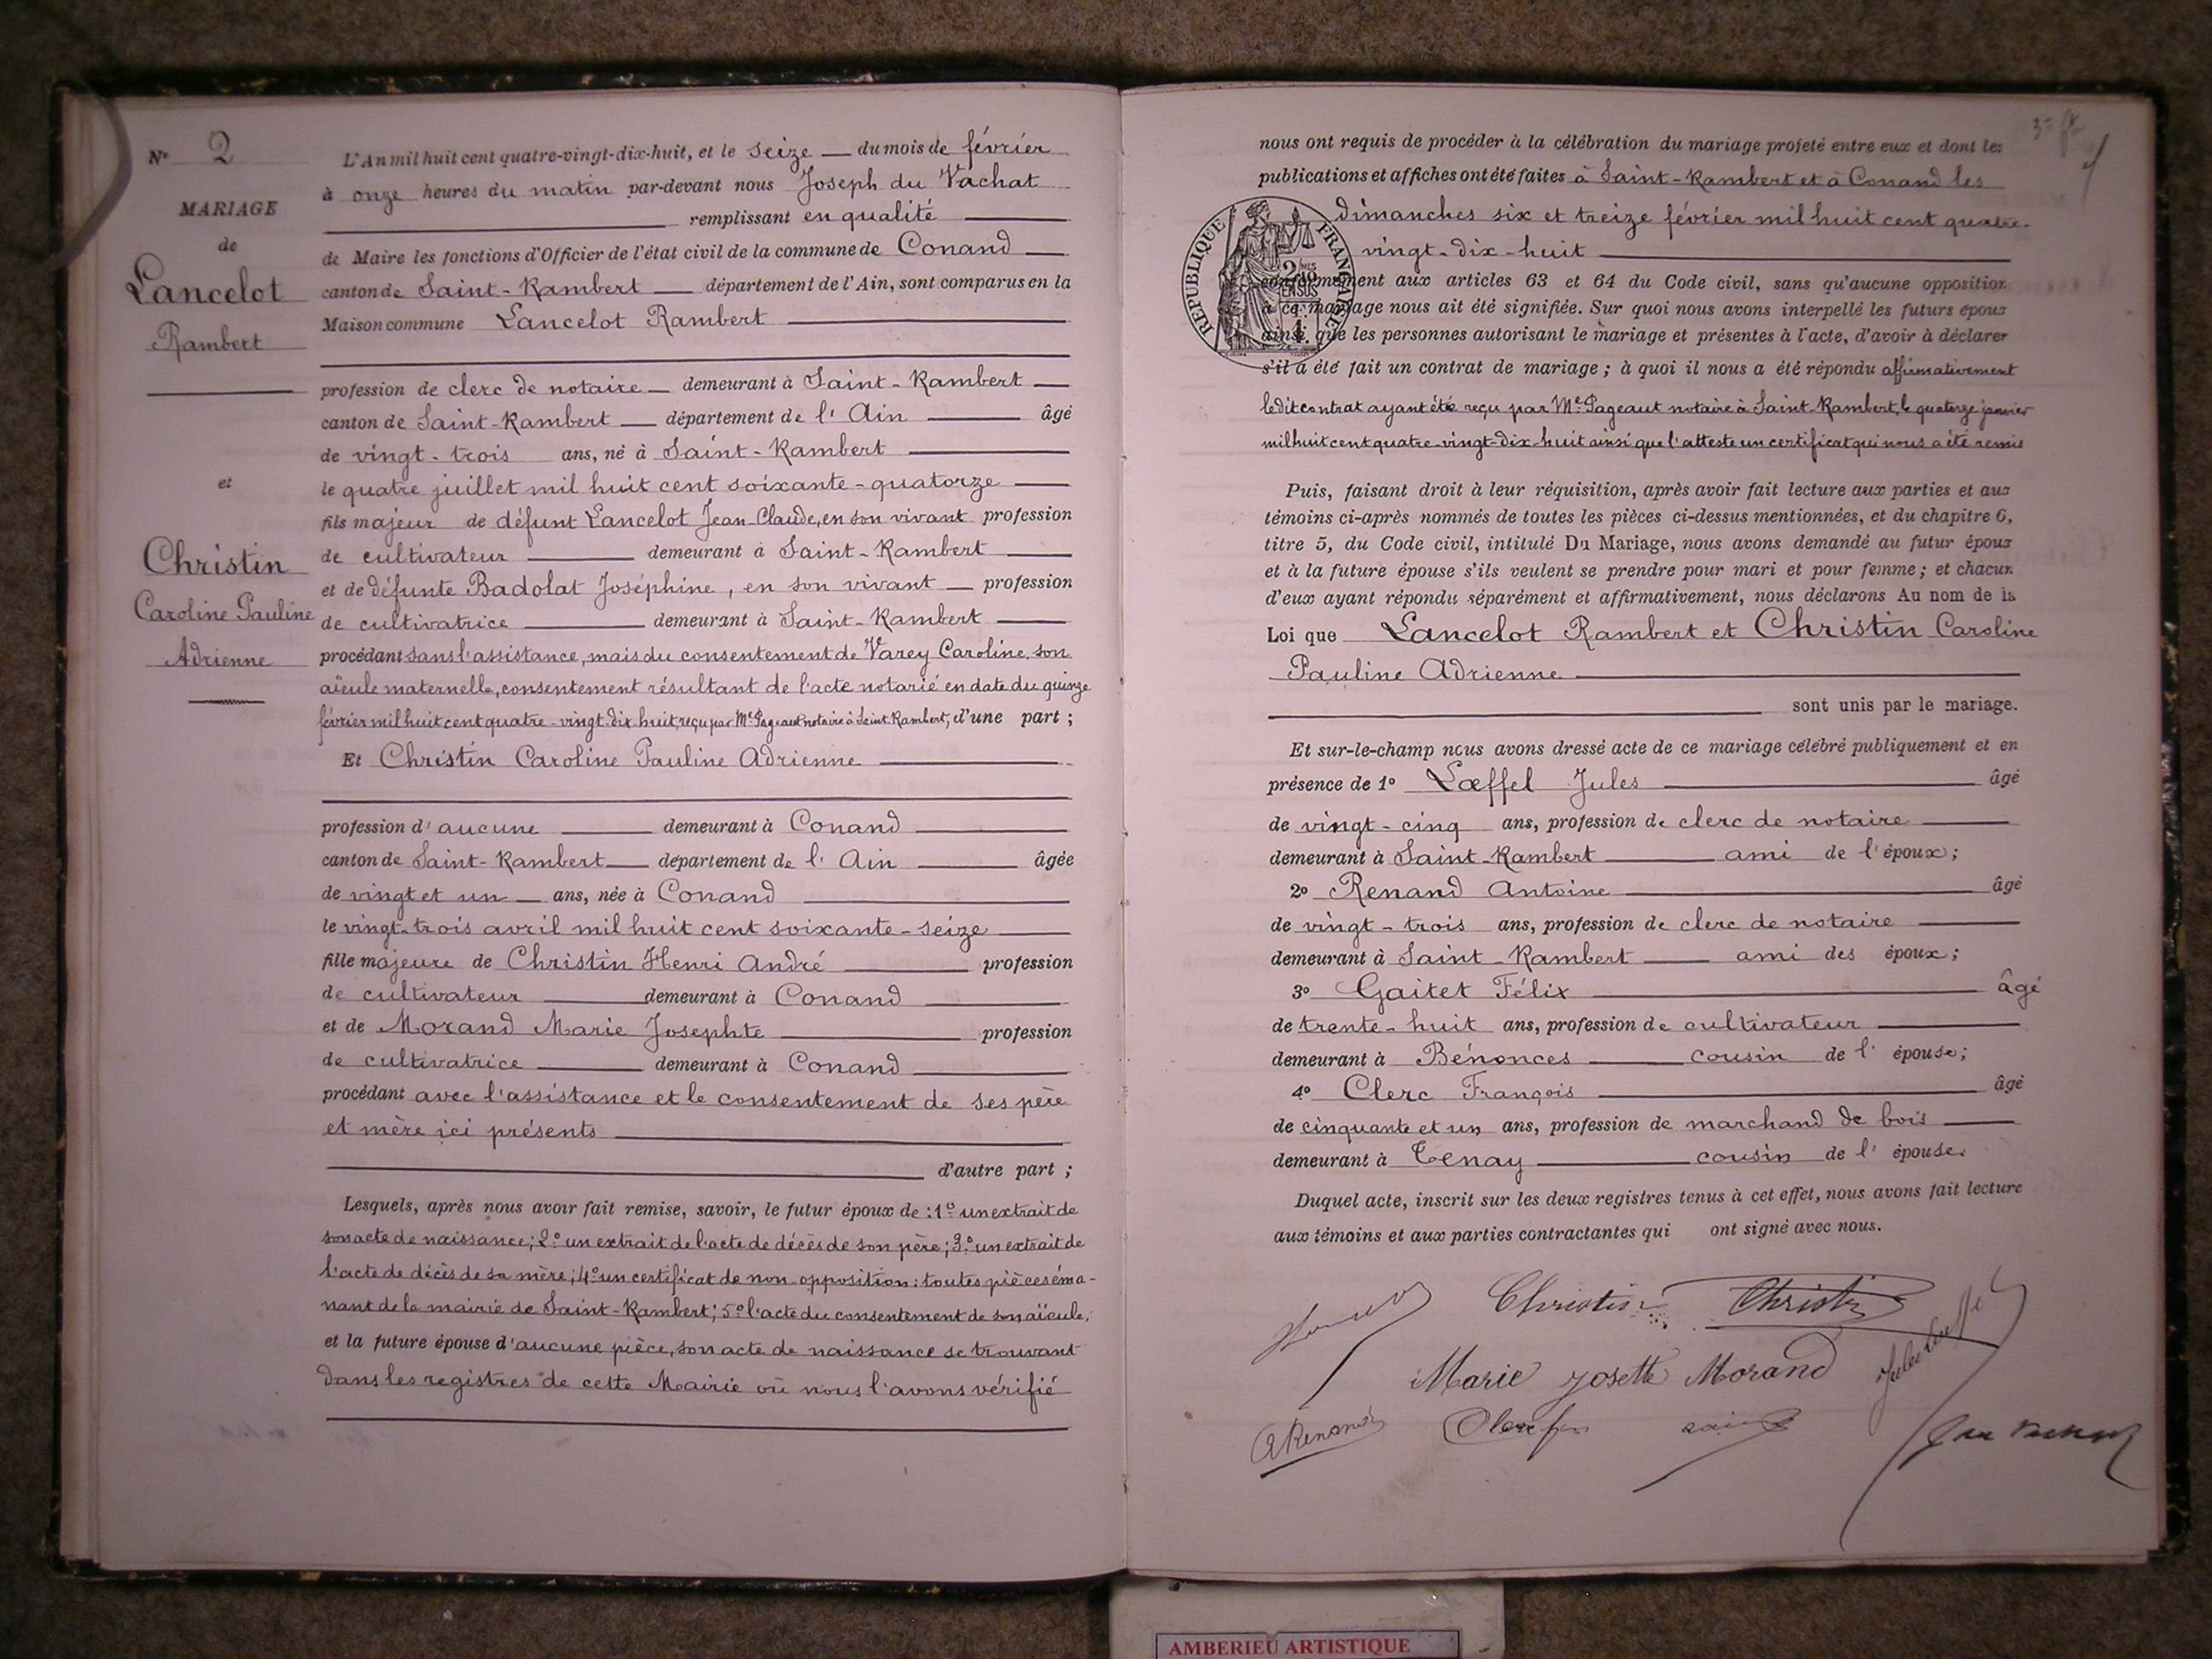 N° 2
MARIAGE
de
Lancelot
Rambert
et
Christin
Caroline Pauline
Adrienne
L'An mil huit cent quatre-vingt-dix-huit, et le seize du mois de février
à onze heures du matin par-devant nous Joseph du Vachat
remplissant en qualité
de Maire les fonctions d'Officier de l'état civil de la commune de Conand
canton de Saint-Rambert département de l'Ain, sont comparus en la
Maison commune Lancelot Rambert
profession de clerc de notaire demeurant à Saint-Rambert
canton de Saint-Rambert département de l'Ain âgé
de vingt-trois ans, né à Saint-Rambert
le quatre juillet mil huit cent soixante-quatorze
fils majeur de défunt Lancelot Jean-Claude, en son vivant profession
de cultivateur demeurant à Saint-Rambert
et de défunte Badolat Joséphine, en son vivant profession
de cultivatrice demeurant à Saint-Rambert
procédant sans l'assistance, mais du consentement de Varey Caroline, son
aïeule maternelle, consentement résultant de l'acte notarié en date du quinze
février mil huit cent quatre-vingt-dix huit, reçu par Me Pageaut notaire à Saint-Rambert, d'une part ;
Et Christin Caroline Pauline Adrienne
profession d'aucune demeurant à Conand
canton de Saint-Rambert département de l'Ain âgée
de vingt et un ans, née à Conand
le vingt-trois avril mil huit cent soixante-seize
fille majeure de Christin Henri André profession
de cultivateur demeurant à Conand
et de Morand Marie Josephte profession
de cultivatrice demeurant à Conand
procédant avec l'assistance et le consentement de ses père
et mère ici présents
d'autre part ;
Lesquels, après nous avoir fait remise, savoir, le futur époux de : 1° un extrait de
son acte de naissance ; 2° un extrait de l'acte de décès de son père ; 3° un extrait de
l'acte de décès de sa mère ; 4° un certificat de non-opposition : toutes pièces éma-
nant de la mairie de Saint-Rambert ; 5° l'acte du consentement de son aïeule,
et la future épouse d'aucune pièce, son acte de naissance se trouvant
dans les registres de cette Mairie où nous l'avons vérifié
nous ont requis de procéder à la célébration du mariage projeté entre eux et dont les
publications et affiches ont été faites à Saint-Rambert et à Conand les
dimanches six et treize février mil huit cent quatre-
vingt-dix-huit
REPUBLIQUE FRANÇAISE
conformément aux articles 63 et 64 du Code civil, sans qu'aucune opposition
à ce mariage nous ait été signifiée. Sur quoi nous avons interpellé les futurs époux
ainsi que les personnes autorisant le mariage et présentes à l'acte, d'avoir à déclarer
s'il a été fait un contrat de mariage ; à quoi il nous a été répondu affirmativement
ledit contrat ayant été reçu par Me Pageaut notaire à Saint-Rambert, le quatorze janvier
mil huit cent quatre-vingt-dix-huit ainsi que l'atteste un certificat qui nous a été remis
Puis, faisant droit à leur réquisition, après avoir fait lecture aux parties et aux
témoins ci-après nommés de toutes les pièces ci-dessus mentionnées, et du chapitre 6,
titre 5, du Code civil, intitulé Du Mariage, nous avons demandé au futur époux
et à la future épouse s'ils veulent se prendre pour mari et pour femme ; et chacun
d'eux ayant répondu séparément et affirmativement, nous déclarons Au nom de la
Loi que Lancelot Rambert et Christin Caroline
Pauline Adrienne
sont unis par le mariage.
Et sur-le-champ nous avons dressé acte de ce mariage célébré publiquement et en
présence de 1° Lœffel Jules âgé
de vingt-cinq ans, profession de clerc de notaire
demeurant à Saint-Rambert ami de l'époux ;
2° Renand Antoine âgé
de vingt-trois ans, profession de clerc de notaire
demeurant à Saint-Rambert ami des époux ;
3° Gaitet Félix âgé
de trente-huit ans, profession de cultivateur
demeurant à Bénonces cousin de l'épouse ;
4° Clerc François âgé
de cinquante et un ans, profession de marchand de bois
demeurant à Tenay cousin de l'épouse.
Duquel acte, inscrit sur les deux registres tenus à cet effet, nous avons fait lecture
aux témoins et aux parties contractantes qui ont signé avec nous.
Christin Christin
Marie Josette Morand
ARenand
AMBERIEU ARTISTIQUE